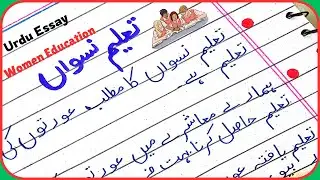 Urdu Essay
Women Education
تعلیم نسواں
تعلیم نسواں کا مطلب عورتوں کی
تعلیم ہے۔
ہمارے معاشرے میں عورت
تعلیم حاصل کرنا بہت
تعلیم یافتہ عورت